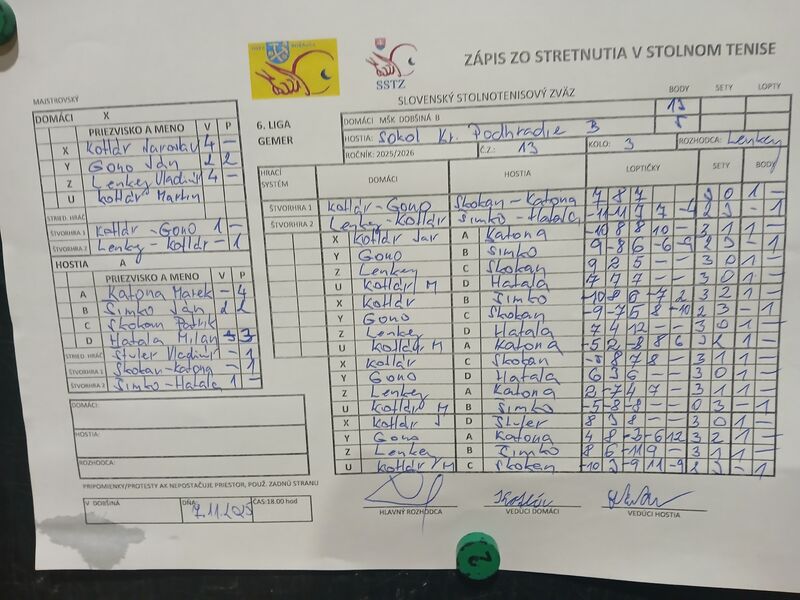 ZÁPIS ZO STRETNUTIA V STOLNOM TENISE
SSTZ
SLOVENSKÝ STOLNOTENISOVÝ ZVÄZ
MAJSTROVSKÝ
DOMÁCI X
PRIEZVISKO A MENO V P
X Kotlár Jaroslav 4 –
Y Gono Ján 2 2
Z Lenkey Vladimír 4 –
U Kotlár Martin
STRIED. HRÁČ
ŠTVORHRA 1 Kotlár - Gono 1 –
ŠTVORHRA 2 Lenkey - Kotlár – 1
HOSTIA A
PRIEZVISKO A MENO V P
A Katona Marek – 4
B Šimko Ján 2 2
C Škokan Patrik
D Hatala Milan
STRIED. HRÁČ Štuler Vladimír – 1
ŠTVORHRA 1 Škokan - Katona – 1
ŠTVORHRA 2 Šimko - Hatala 1 –
6. LIGA
GEMER
BODY SETY LOPTY
DOMÁCI MŠK DOBŠINÁ B 13
HOSTIA: Sokol Kr. Podhradie B 5
ROZHODCA: Lenkey
ROČNÍK: 2025/2026 Č.Z: 13 KOLO: 3
HRACÍ SYSTÉM DOMÁCI HOSTIA LOPTIČKY SETY BODY
ŠTVORHRA 1 Kotlár - Gono Škokan - Katona 7 8 7 3 0 1 –
ŠTVORHRA 2 Lenkey - Kotlár Šimko - Hatala 2 3 – 1
X Kotlár Jar A Katona -10 8 8 10 – 3 1 1 –
Y Gono B Šimko -9 -8 6 -6 -9 – 1
Z Lenkey C Škokan 9 2 5 – – 3 0 1 –
U Kotlár M D Hatala 7 7 7 – – 3 0 1 –
X Kotlár B Šimko -10 8 6 -7 2 3 2 1 –
Y Gono C Škokan -9 -7 5 8 -10 2 3 – 1
Z Lenkey D Hatala 7 4 12 – – 3 0 1 –
U Kotlár M A Katona -5 2 -8 8 6 3 2 1 –
X Kotlár C Škokan 8 7 8 – 3 1 1 –
Y Gono D Hatala 6 3 6 – – 3 0 1 –
Z Lenkey A Katona 2 -7 4 7 – 3 1 1 –
U Kotlár M B Šimko -5 -8 -8 – – 0 3 – 1
X Kotlár J D Štuler 8 – – 3 0 1 –
Y Gono A Katona 4 8 -3 -6 12 3 2 1 –
Z Lenkey B Šimko 8 6 -11 9 – 3 1 1 –
U Kotlár M C Škokan -10 -9 11 -9 – 1
DOMÁCI:
HOSTIA:
ROZHODCA:
PRIPOMIENKY/PROTESTY AK NEPOSTAČUJE PRIESTOR, POUŽ. ZADNÚ STRANU
V DOBŠINÁ DŇA 7.11.2025 ČAS:18.00 hod
HLAVNÝ ROZHODCA VEDÚCI DOMÁCI VEDÚCI HOSTIA